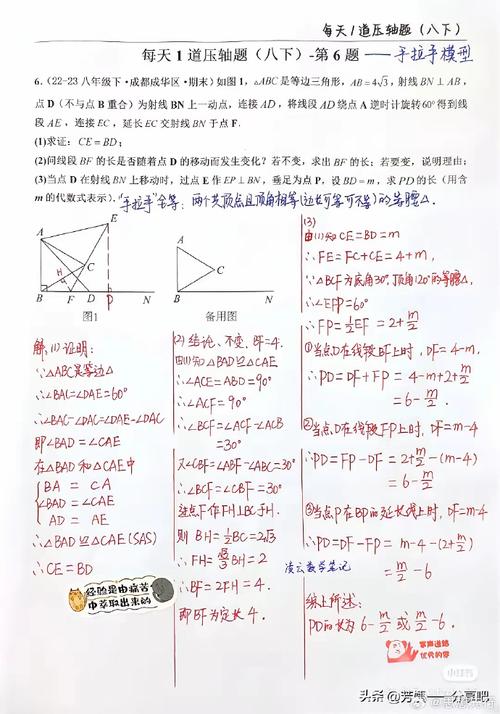 每天1道压轴题(八下)
每天1道压轴题(八下)-第6题——手拉手模型
6.(22-23八年级下·成都成华区·期末)如图1,△ABC是等边三角形,AB=4√3,射线BN⊥AB,
点D(不与点B重合)为射线BN上一动点,连接AD,将线段AD绕点A逆时计旋转60°得到线
段AE,连接EC,延长EC交射线BN于点F.
(1)求证:CE=BD;
(2)问线段BF的长是否随着点D的移动而发生变化?若不变,求出BF的长;若要变,说明理由;
(3)当点D在射线BN上移动时,过点E作EP⊥BN,垂足为点P,设BD=m,求PD的长(用含
m的代数式表示).
"手拉手"全等:两个共顶点且顶角相等(边长可等可不等)的等腰△.
A
E
H
C
B
F
D
P
N
图1
A
C
B
N
备用图
解:(1)证明:
∵△ABC是等边△
∴∠BAC=∠DAE=60°
∴∠BAC-∠DAC=∠DAE-∠DAC
即∠BAD=∠CAE
在△BAD和△CAE中
BA=CA
∠BAD=∠CAE
AD=AE
∴△BAD≌△CAE(SAS)
∴CE=BD
经验是由痛苦
中萃取出来的
(2)结论:不变,BF=4.
由(1)知△BAD≌△CAE
∴∠ACE=ABD=90°
∴∠ACF=90°
∴∠BCF=∠ACF-∠ACB
=30°
又∠CBF=∠ABF-∠ABC=30°
∴∠BCF=∠CBF=30°
过点F作FH⊥BC于H.
则BH=½BC=2√3
∴FH=√3/3BH=2
∴BF=2FH=4.
即BF为定长4.
(3)
由(1)知CE=BD=m
∴FE=FC+CE=4+m,
∵△BCF为底角30°,顶角120°的等腰△,
∴∠EFP=60°
∴FP=½EF=2+m/2
①当点D在线段BF上时,DF=4-m,
∴PD=DF+FP=4-m+2+m/2
=6-m/2.
②当点D在线段FP上时,DF=m-4
∴PD=FP-DF=2+m/2-(m-4)
=6-m/2
③当点P在BP的延长线上时,DF=m-4
∴PD=DF-FP=m-4-(2+m/2)
=m/2-6
凌云数学笔记
综上所述:
PD的长为6-m/2或m/2-6.
掌声送给
优秀的你
小红书
头条@芳蕤——分享吧